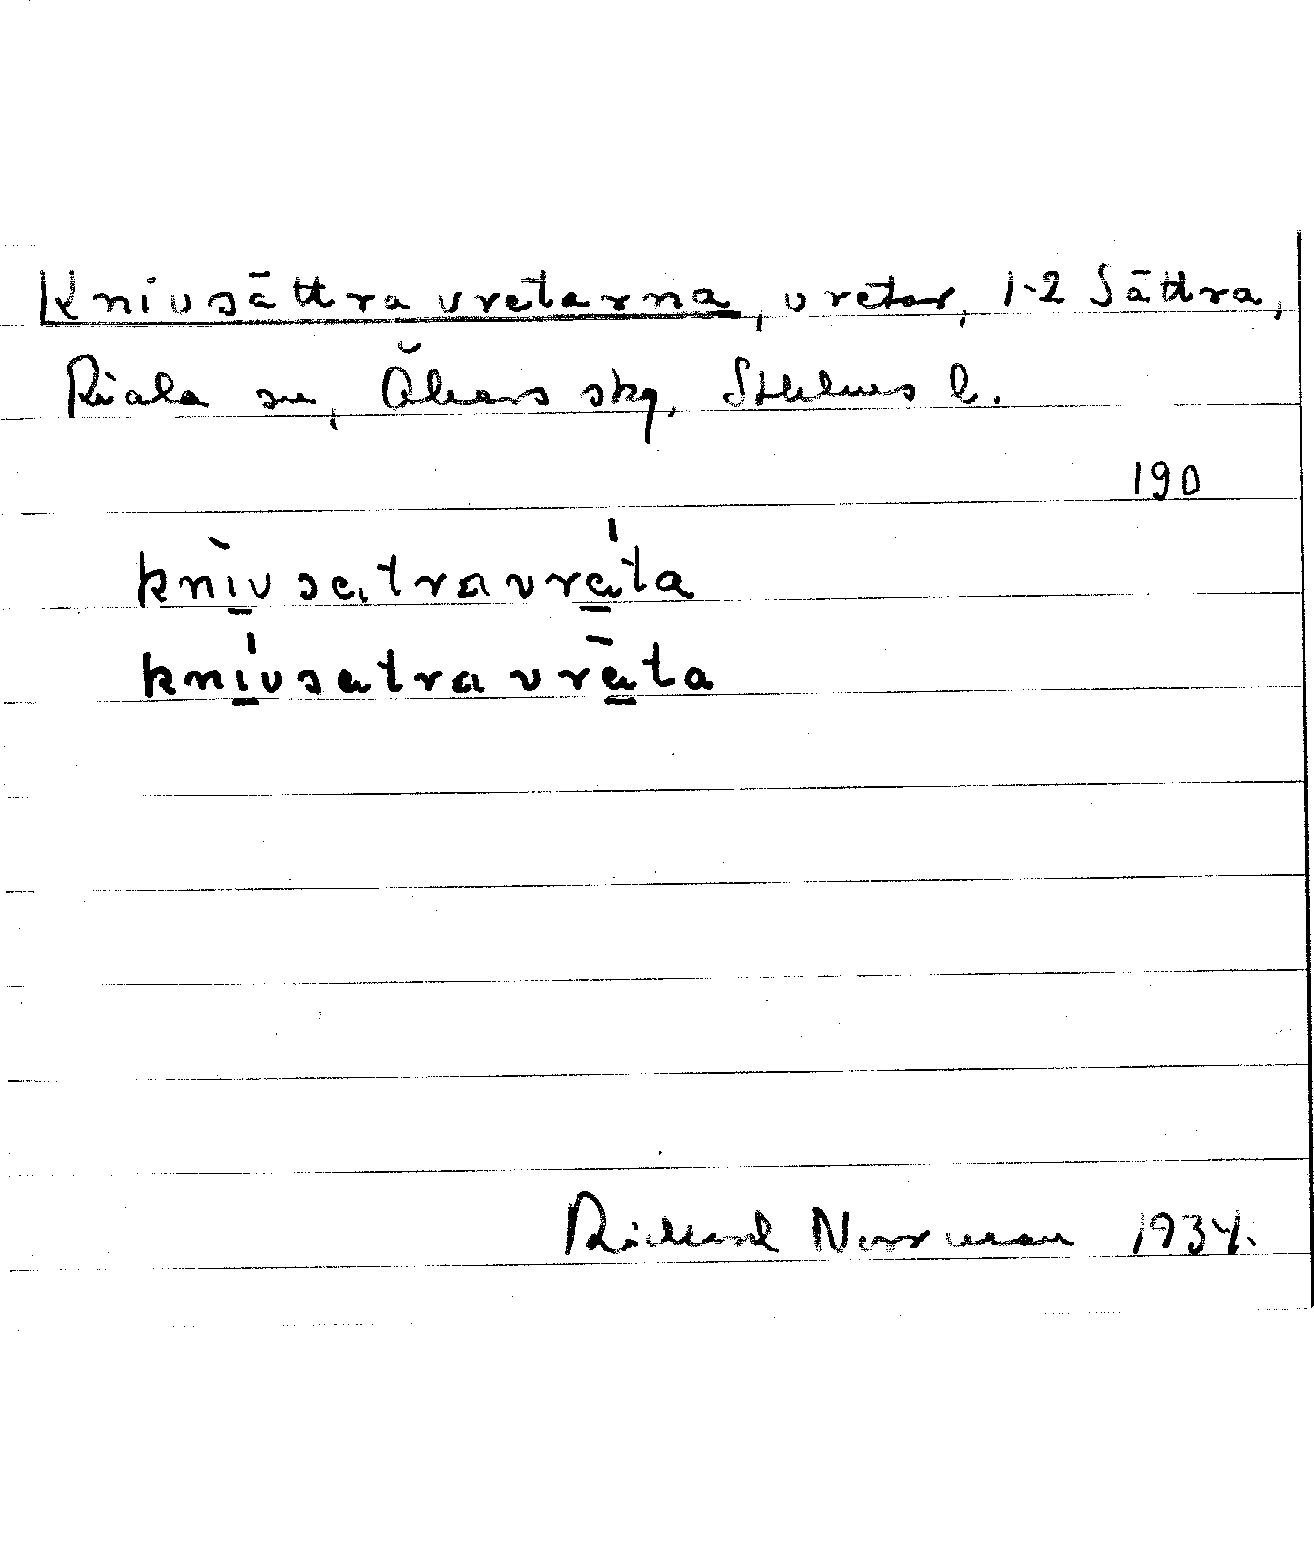 Knivsättra vretarna, vretar, 1-2 Sättra,
Riala sn, Åkers skg, Sthlms l.
190
knìvsatravráta
knívsatravràta
Rickard Norrman 1934.